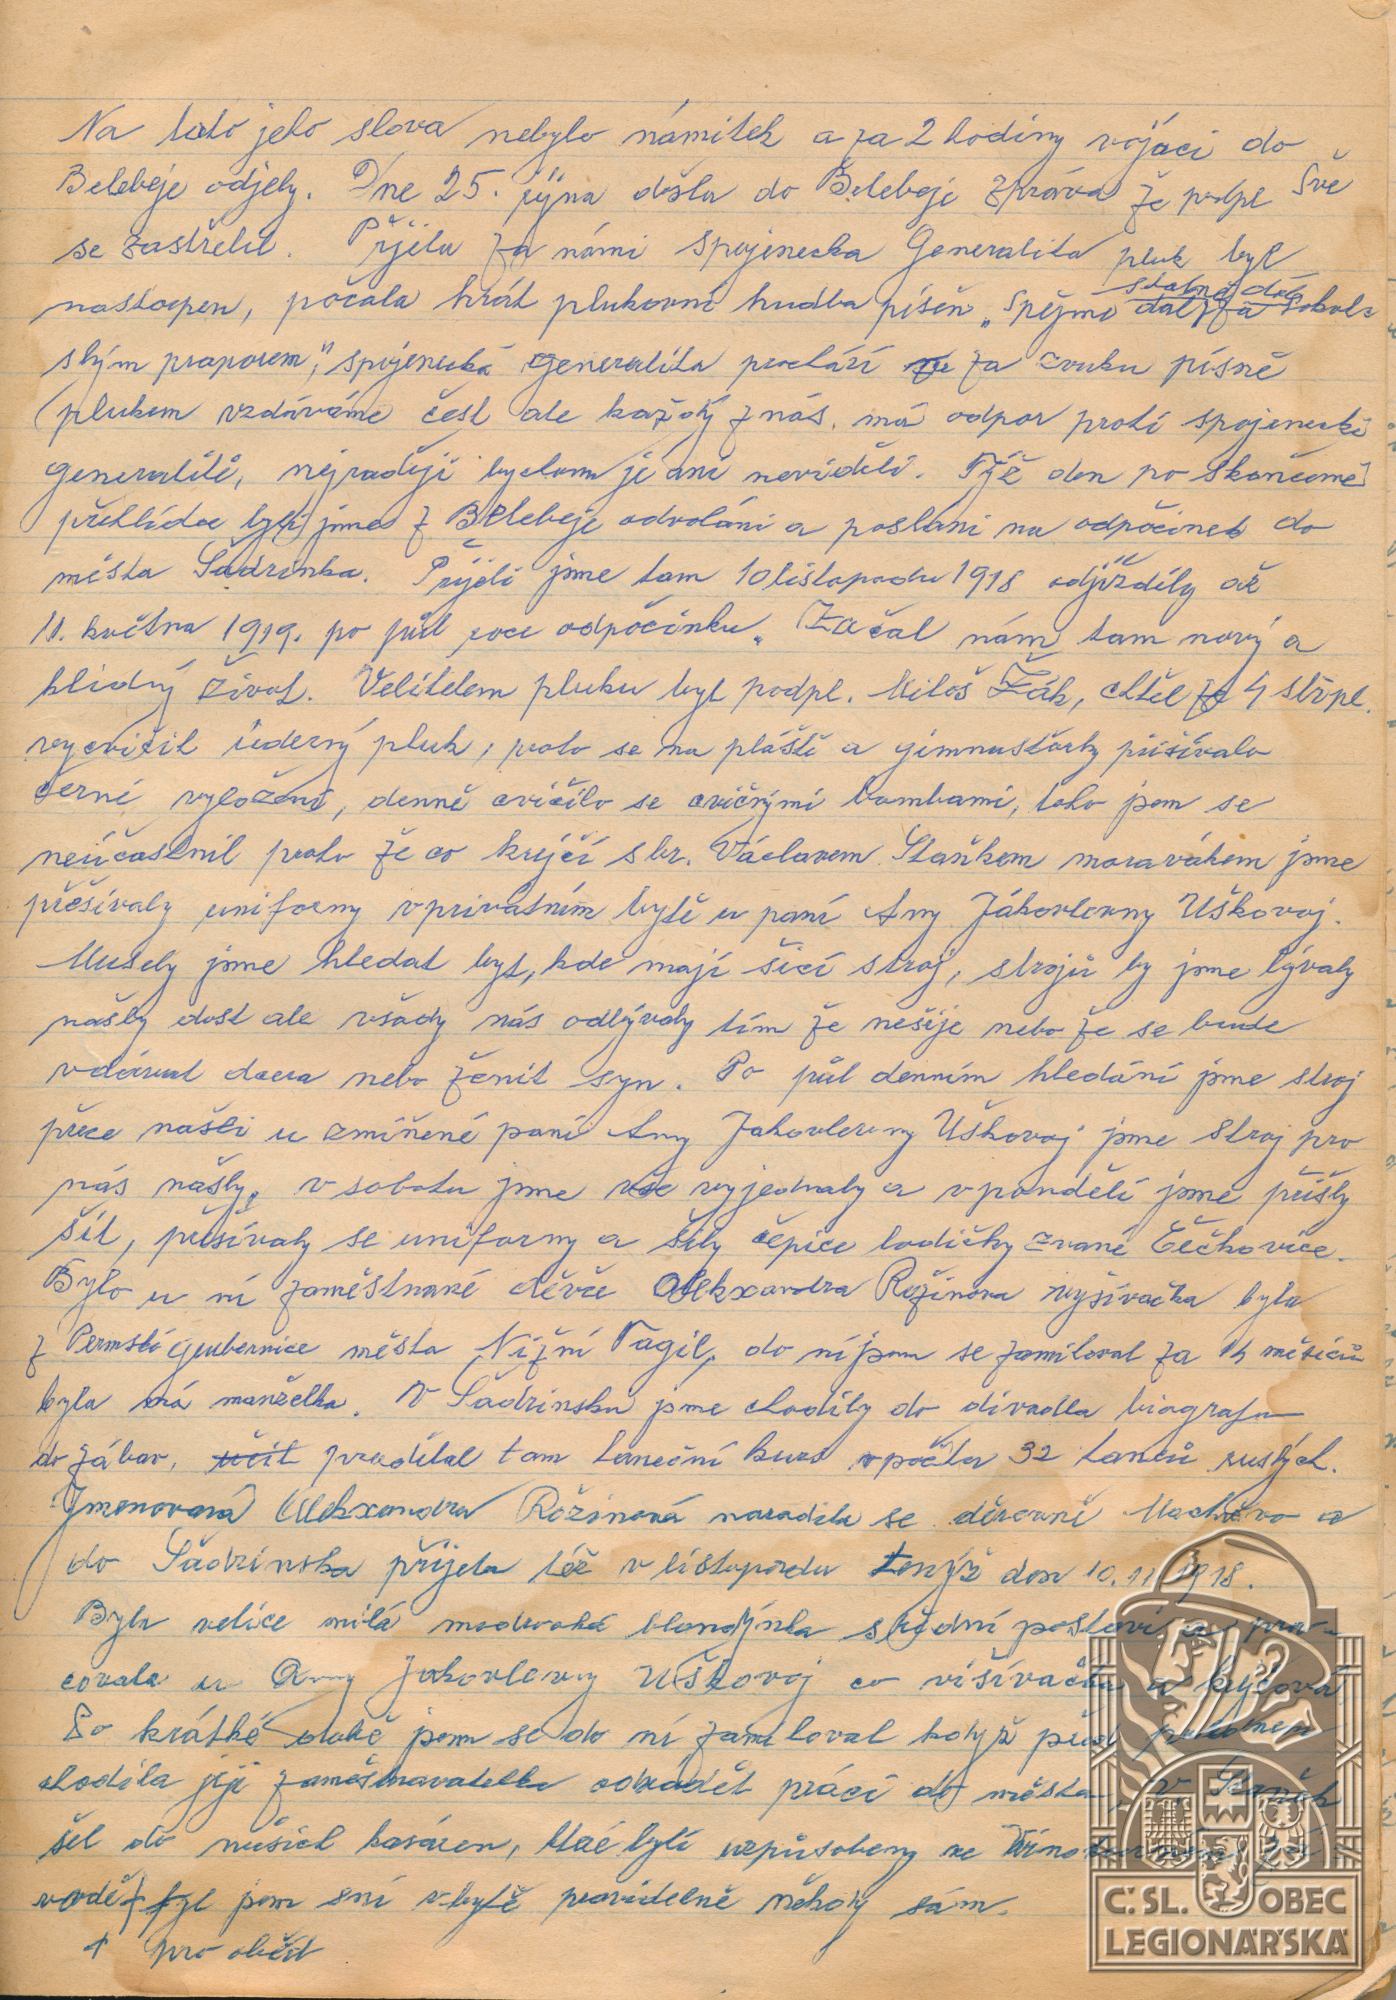 Na tato jeho slova nebylo námitek a za 2 hodiny vojáci do
Belebeje odjely. Dne 25. října došla do Belebeje zpráva že podpl Šve
se zastřelil. Přijela za námi spojenecka Generalita pluk byl
nastoupen, počala hrát plukovní hudba píseň „Spějme dál za sokol-
statně dál
ským praporem", spojenecká generalita prochází za zvuku písně
plukem vzdáváme čest ale každý z nás. má odpor proti spojenecké
generalitě, nejraději bychom je ani neviděli. Týž den po skončené
přehlídce byli jsme z Belebeje odvoláni a poslani na odpočinek do
města Šadrinska. Přijeli jsme tam 10 listopadu 1918 odjížděly až
11. května 1919. po půl roce odpočinku. Začal nám tam nový a
klidný život. Velitelem pluku byl podpl. Miloš Žák, chtěl ze 4 stř.pl.
vycvičit úderný pluk, proto se na pláště a gimnasťorky přišívalo
černé vyložení, denně cvičilo se cvičnými bombami, toho jsem se
neúčastnil proto že co krejčí s br. Václavem Staňkem moravákem jsme
přešívaly uniformy v privatním bytě u paní Any Jákovlevny Uškovoj.
Musely jsme hledat byt, kde mají šicí stroj, strojů by jsme bývaly
našly dost ale všady nás odbývaly tím že nešije nebo že se bude
vdávat dcera nebo ženit syn. Po půl denním hledání jsme stroj
přece našli u zmíněné paní Any Jakovlevny Uškovoj jsme stroj pro
nás našly, v sobotu jsme vše vyjednaly a v pondělí jsme přišly
šít, přešívaly se uniformy a šily čepice lodičky zvané Čečkovice.
Bylo u ní zaměstnané děvče Alekxandra Rožinova vyšívačka byla
z Permské gubernice města Nižní Tagil, do ní jsem se zamiloval za 14 měsíců
byla má manželka. V Šadrinsku jsme chodily do divadla biografu
do zábav, učit prodělal tam taneční kurs v počtu 32 tanců ruských.
Jmenovaná Alekxandra Rožinová narodila se v děrevni Machněvo a
do Šadrinska přijela též v listopadu tenýž den 10.11.1918.
Byla velice milá modrooká blondýnka střední postavi a pra-
covala u Anny Jakovlevny Uškovoj co višívačka a krejčová
Po krátké době jsem se do ní zamiloval když před polednem
chodila její zaměstnavatelka odvádět práci do města, V. Staněk
šel do našich kasáren, které byli uzpůsobeny ve Vinokurném zá
vodě + byl jsem sní v bytě pravidelně někoky sám.
+ pro oběd
Č.SL. OBEC
LEGIONÁŘSKÁ